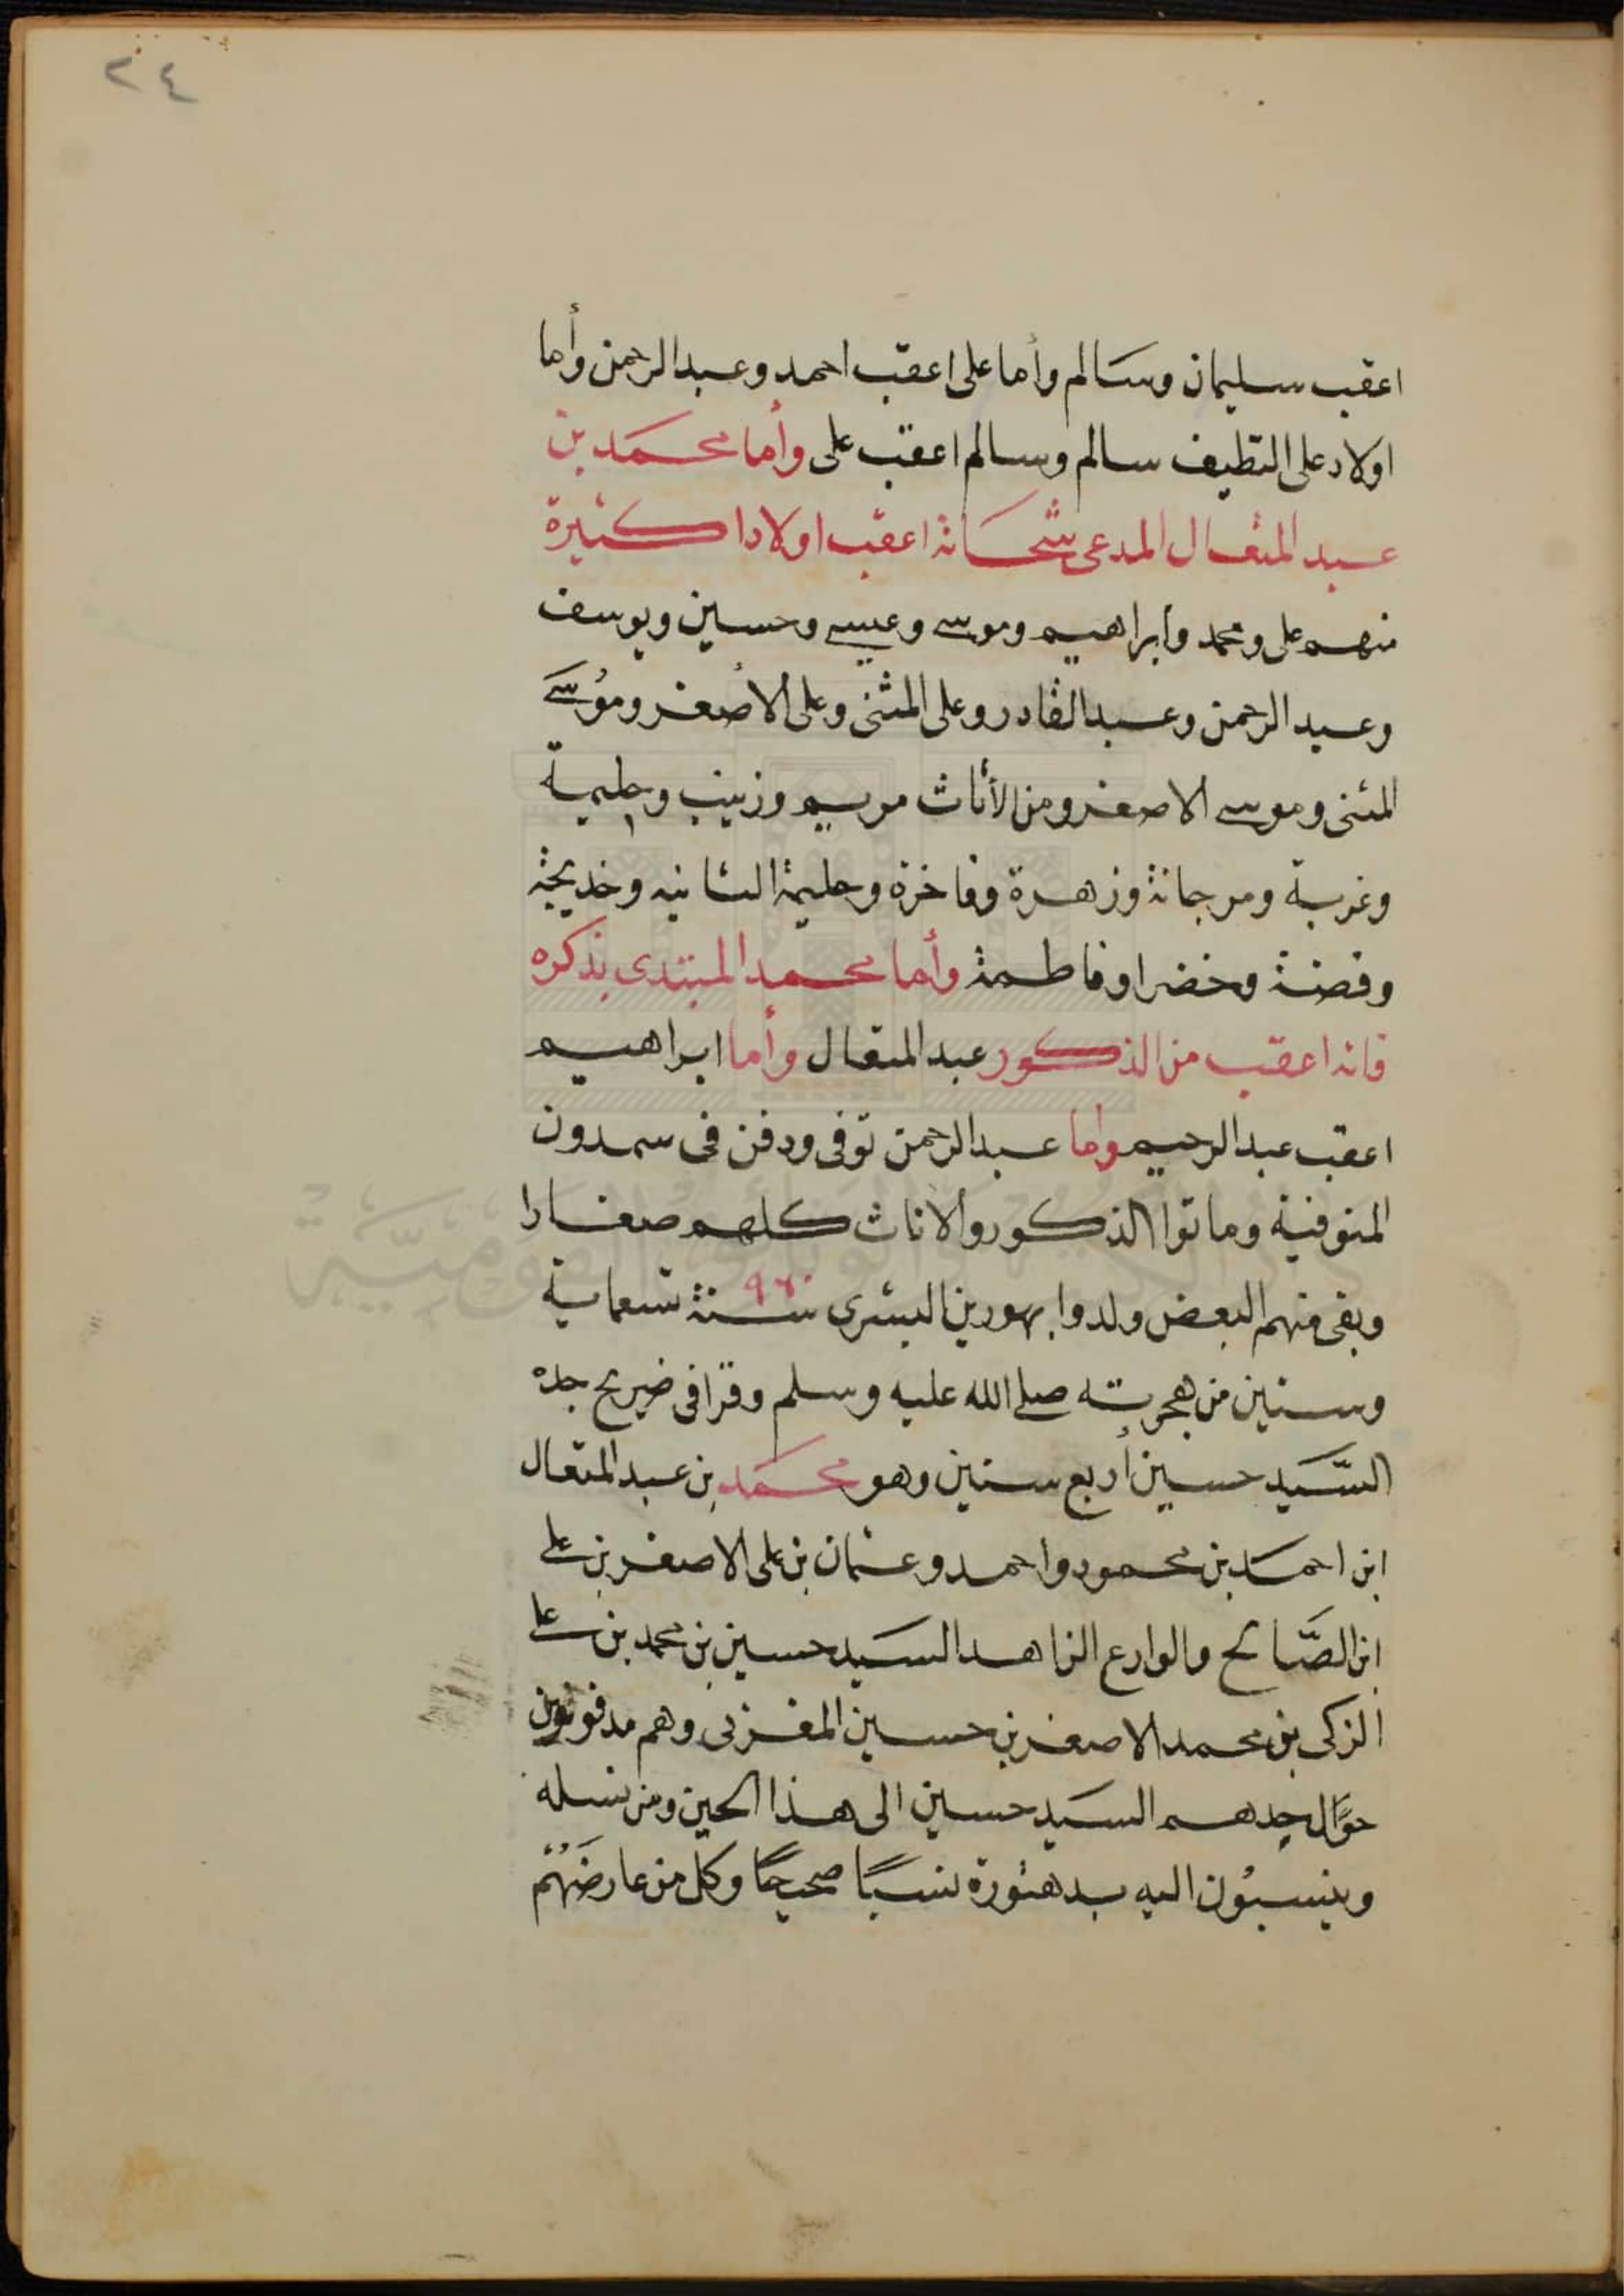 ٢٤
اعقب سليمان وسالم وأما على اعقب احمد وعبد الرحمن وأما
اولاد على التطيف سالم وسالم اعقب على وأما محمد بن
عبد المتعال المدعى شحاتة اعقب اولادا كثيرة
منهم على ومحمد وابراهيم وموسى وعيسى وحسين ويوسف
وعبد الرحمن وعبد القادر وعلى المثنى وعلى الأصغر وموسى
المثنى وموسى الاصغر ومن الأناث مريم وزينب وحليمة
وغربية ومرجانة وزهرة وفاخرة وحليمة الثانيه وخديجة
وفضة وخضرا وفاطمة وأما محمد المبتدى بذكره
فانه اعقب من الذكور عبد المتعال وأما ابراهيم
اعقب عبد الرحيم واما عبد الرحمن توفى ودفن فى سمدون
المنوفية وماتوا الذكور والاناث كلهم صغارا
وبقى منهم البعض ولدوا بهورين البشرى سنة ٩٦٠ تسعماية
وستين من هجرته صلى الله عليه وسلم وقرا فى ضريح جده
السَّيد حسين أربع سنين وهو محمد بن عبد المتعال
ابن احمد بن محمود واحمد وعثمان بن على الاصغر بن على
ابن الصَّالح والوارع الزاهد السيد حسين بن محمد بن على
الزكى بن محمد الاصغر بن حسين المغربى وهم مدفونون
حوَّال جدهم السيد حسين الى هذا الحين ومن نسله
وينسبُون اليه بدهتورة نسبًا صحيحًا وكل من عارضَهُم
دار الكتب والوثائق القومية